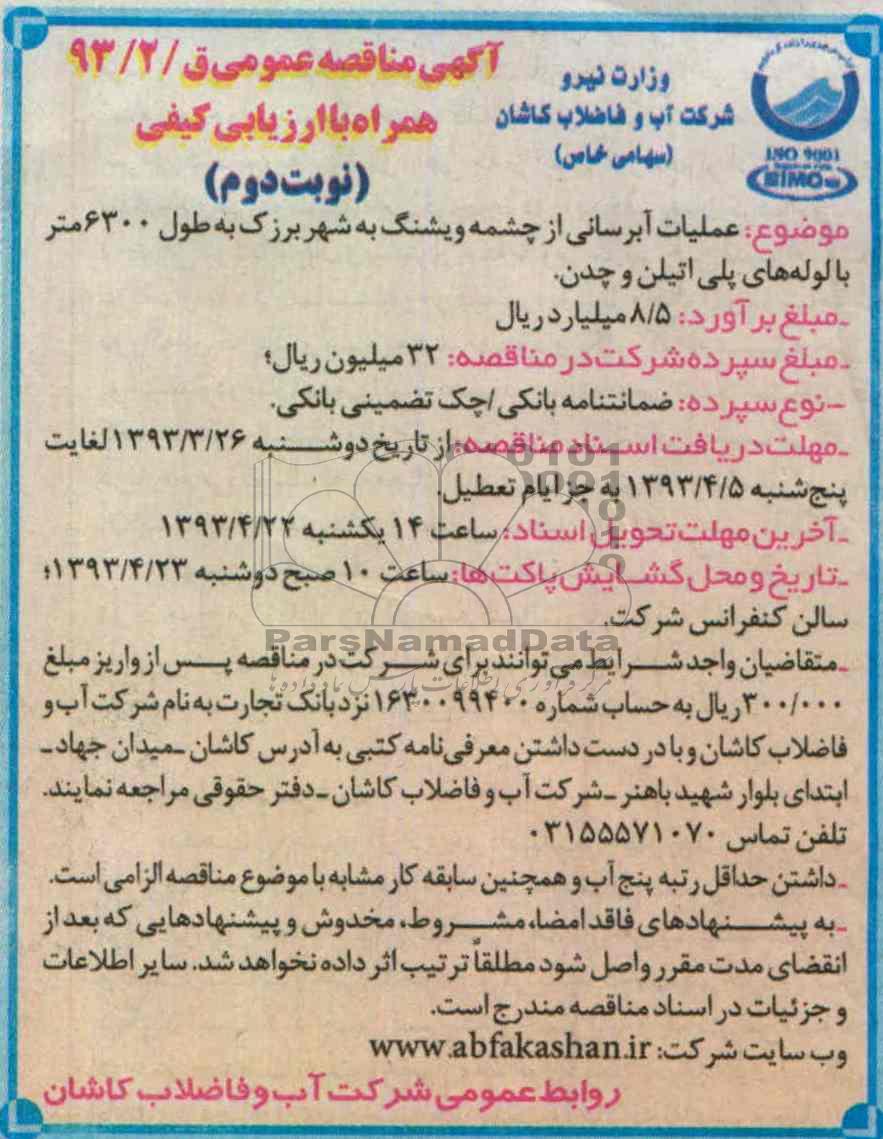 آگهی مناقصه عمومی ق / ۹۳/۲
همراه با ارزیابی کیفی
(نوبت دوم)
وزارت نیرو
شرکت آب و فاضلاب کاشان
(سهامی خاص)
ISO 9001
SIMC
موضوع: عملیات آبرسانی از چشمه ویشنگ به شهر برزک به طول ۶۳۰۰ متر
با لوله‌های پلی اتیلن و چدن.
ـ مبلغ برآورد: ۸/۵ میلیارد ریال
ـ مبلغ سپرده شرکت در مناقصه: ۳۲ میلیون ریال؛
- نوع سپرده: ضمانتنامه بانکی /چک تضمینی بانکی.
ـ مهلت دریافت اسناد مناقصه: از تاریخ دوشنبه ۱۳۹۳/۳/۲۶ لغایت
پنج‌شنبه ۱۳۹۳/۴/۵ به جز ایام تعطیل.
ـ آخرین مهلت تحویل اسناد: ساعت ۱۴ یکشنبه ۱۳۹۳/۴/۲۲
ـ تاریخ و محل گشایش پاکت‌ها: ساعت ۱۰ صبح دوشنبه ۱۳۹۳/۴/۲۳؛
سالن کنفرانس شرکت.
ParsNamadData
ـ متقاضیان واجد شرایط می‌توانند برای شرکت در مناقصه پس از واریز مبلغ
۳۰۰/۰۰۰ ریال به حساب شماره ۱۶۳۰۰۹۹۴۰۰ نزد بانک تجارت به نام شرکت آب و
فاضلاب کاشان و با در دست داشتن معرفی‌نامه کتبی به آدرس کاشان ـ میدان جهاد ـ
ابتدای بلوار شهید باهنر ـ شرکت آب و فاضلاب کاشان ـ دفتر حقوقی مراجعه نمایند.
تلفن تماس ۰۳۱۵۵۵۷۱۰۷۰
ـ داشتن حداقل رتبه پنج آب و همچنین سابقه کار مشابه با موضوع مناقصه الزامی است.
ـ به پیشنهادهای فاقد امضا، مشروط، مخدوش و پیشنهادهایی که بعد از
انقضای مدت مقرر واصل شود مطلقاً ترتیب اثر داده نخواهد شد. سایر اطلاعات
و جزئیات در اسناد مناقصه مندرج است.
وب سایت شرکت: www.abfakashan.ir
روابط عمومی شرکت آب و فاضلاب کاشان